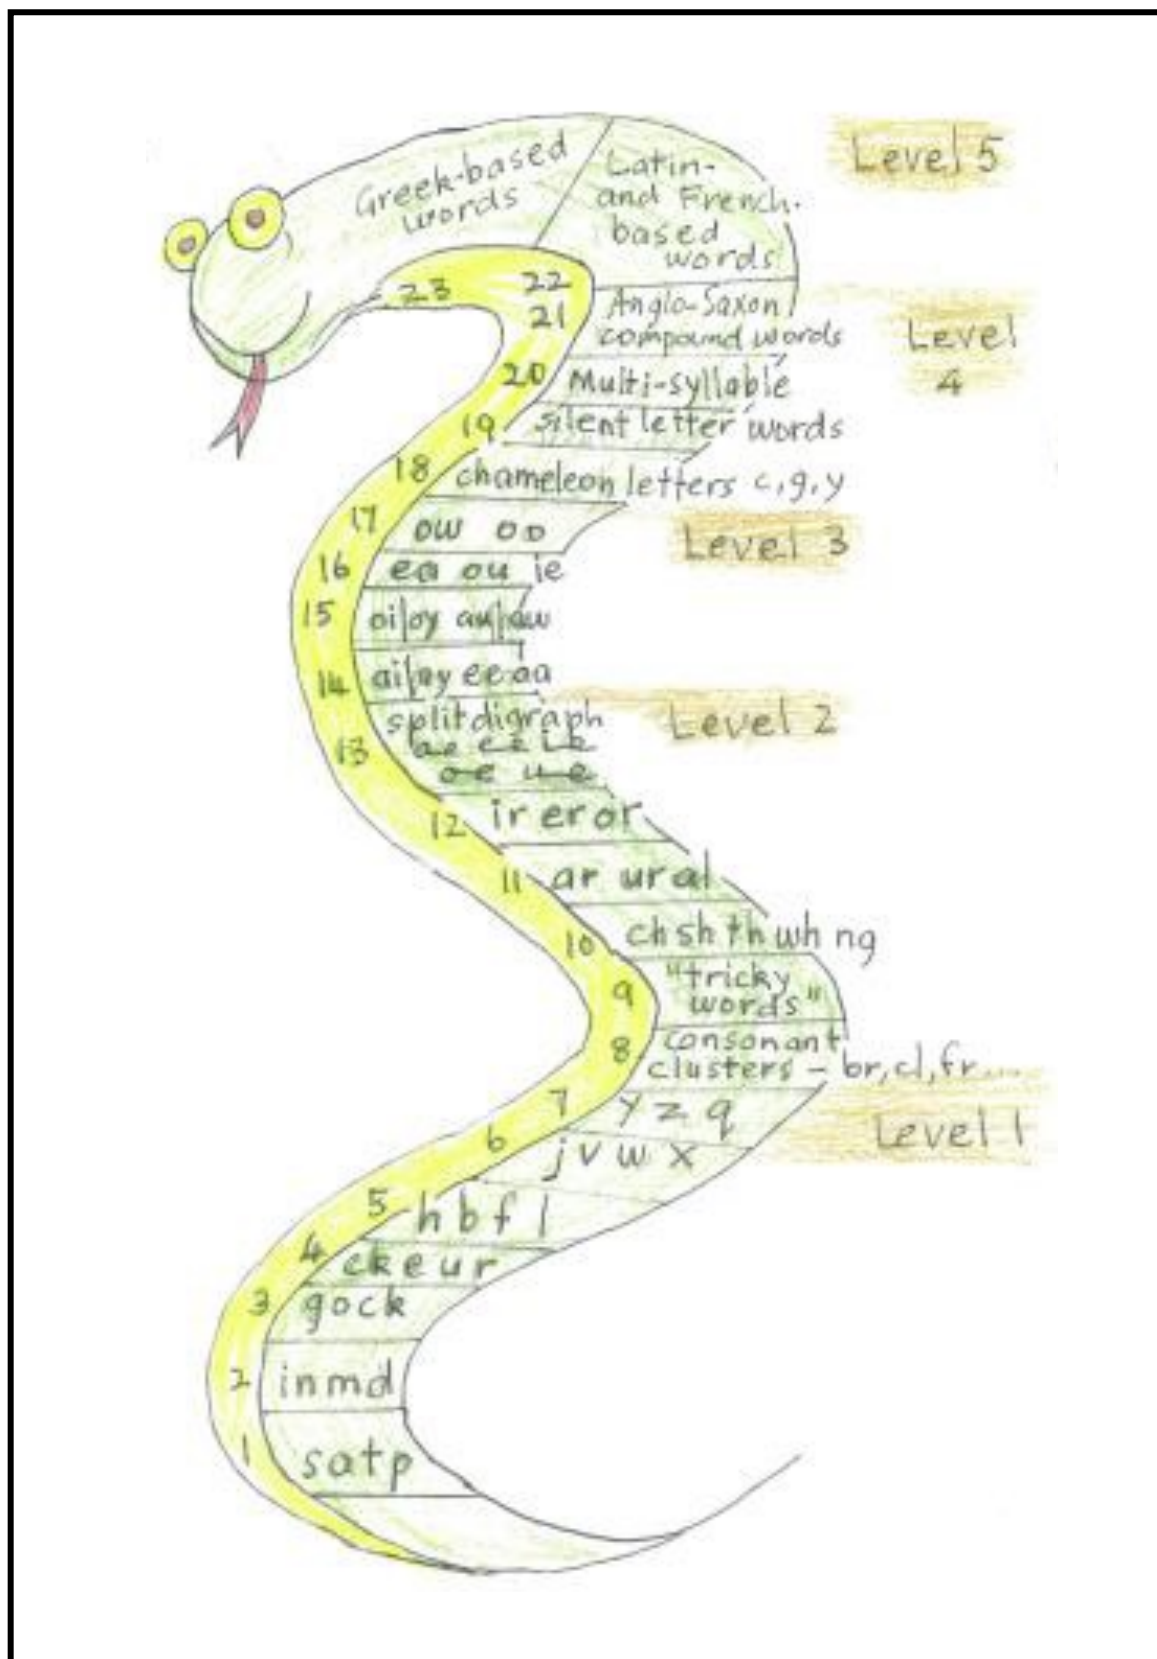 Greek-based
words
Latin-
and French-
based
words
Level 5
23
22
21
Anglo-Saxon
compound words
Level
4
20
Multi-syllable
19
silent letter words
18
chameleon letters c, g, y
17
ow oo
Level 3
16
ea ou ie
15
oi/oy au/aw
14
ai/ay ee oa
13
split digraph
Level 2
12
ir er or
11
ar ur al
10
ch sh th wh ng
9
"tricky
words"
8
consonant
clusters - br, cl, fr....
7
y z q
Level 1
6
j v w x
5
h b f l
4
ck e u r
3
g o c k
2
i n m d
1
s a t p